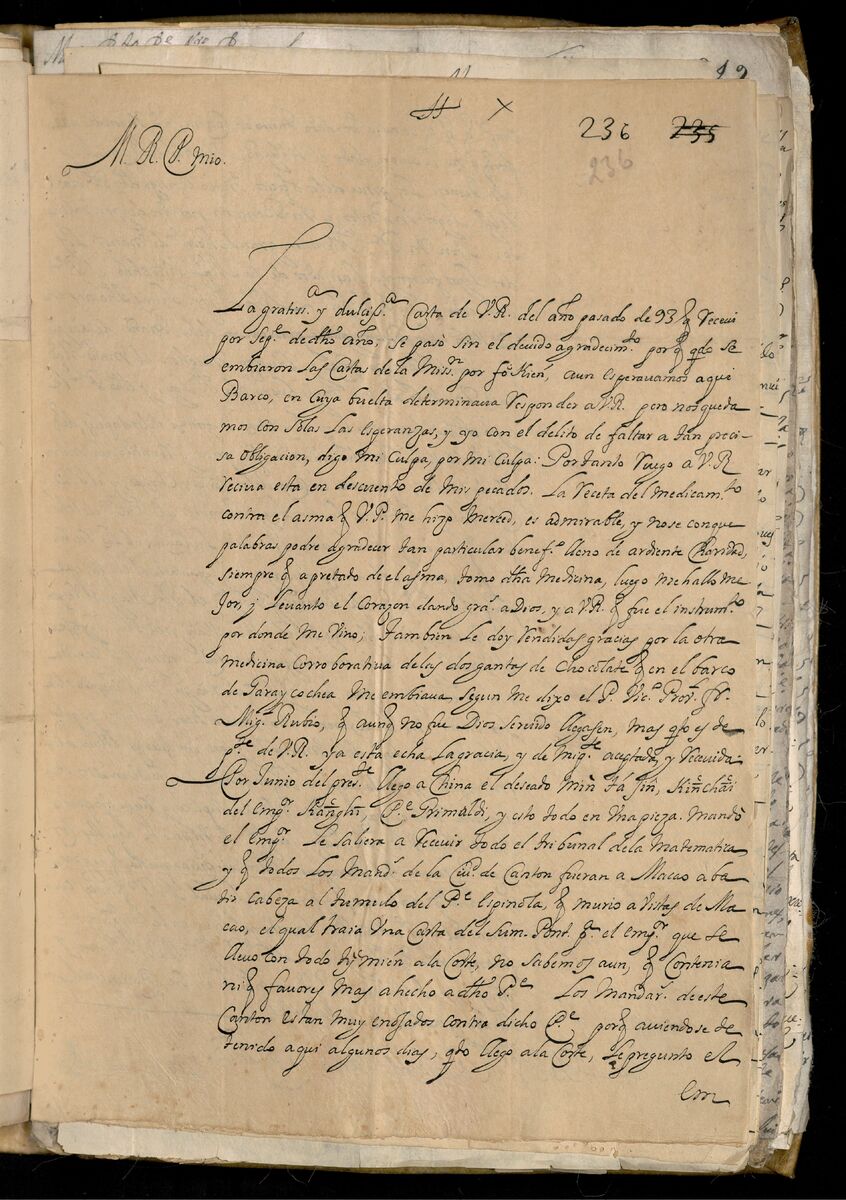 236 235
236
M. R. P. mio.
La gratiss.ª y dulciss.ª Carta de V.R. del año pasado de 93 q̃ Receui
por Sep.e de dho año, se pasò sin el deuido agradecim.to porq̃ q̃do se
embiaron las Cartas de la Miss.n por fò Kien, aun esperauamos aqui
Barco, en cuya buelta determinaua Responder a V.R. pero nos queda
mos con solas las esperanzas, y yo con el delito de faltar a tan preci-
sa obligacion, digo mi culpa, por mi culpa: Por tanto Ruego a V.R
Reciua esta en descuento de mis pecados. La Receta del medicam.to
contra el asma q̃ V.P. me hizo merced, es admirable, y no se con que
palabras podre agradecer tan particular benef.o lleno de ardiente Charidad,
siempre q̃ apretado de el asma, tomo dha medicina, luego me hallo me
jor, y leuanto el corazon dando gra.s a Dios, y a V.R. q̃ fue el instrum.to
por donde me vino; tambien le doy Rendidas gracias por la otra
medicina corroboratiua de las dos gantas de Chocolate q̃ en el barco
de Paraycochea me embiaua segun me dixo el P. Vic.o Prou.l fr.
Mig.l Rubio, q̃ aunq̃ no fue Dios seruido llegasen, mas q̃to es de
p.te de V.R. ya està echa la gracia, y de mi p.te aceptada, y Receuida.
Por Junio del pres.te llego a China el deseado Miñ Tà jiñ, Kiñ chāi
del Emp.r Kañghi, P.e Grimaldi, y esto todo en vna pieza. Mandò
el emp.r le saliera a Receuir todo el tribunal de la Matematica,
y q̃ todos los Mand.s de la Ciu.d de Canton fueran a Macao a ba
tir cabeza al tumulo del P.e Espinola, q̃ murio a vistas de Ma
cao, el qual traia vna Carta del Sum. Pont. p.a el emp.r que se
lleuo con todo tỳ mién a la Corte, no sabemos aun, q̃ contenia
ni q̃ fauores mas a hecho a dho P.e Los Mandar.s de este
Canton estan muy enojados contra dicho P.e porq̃ auiendose de
tenido aqui algunos dias, q̃do llego a la Corte, le pregunto el
em